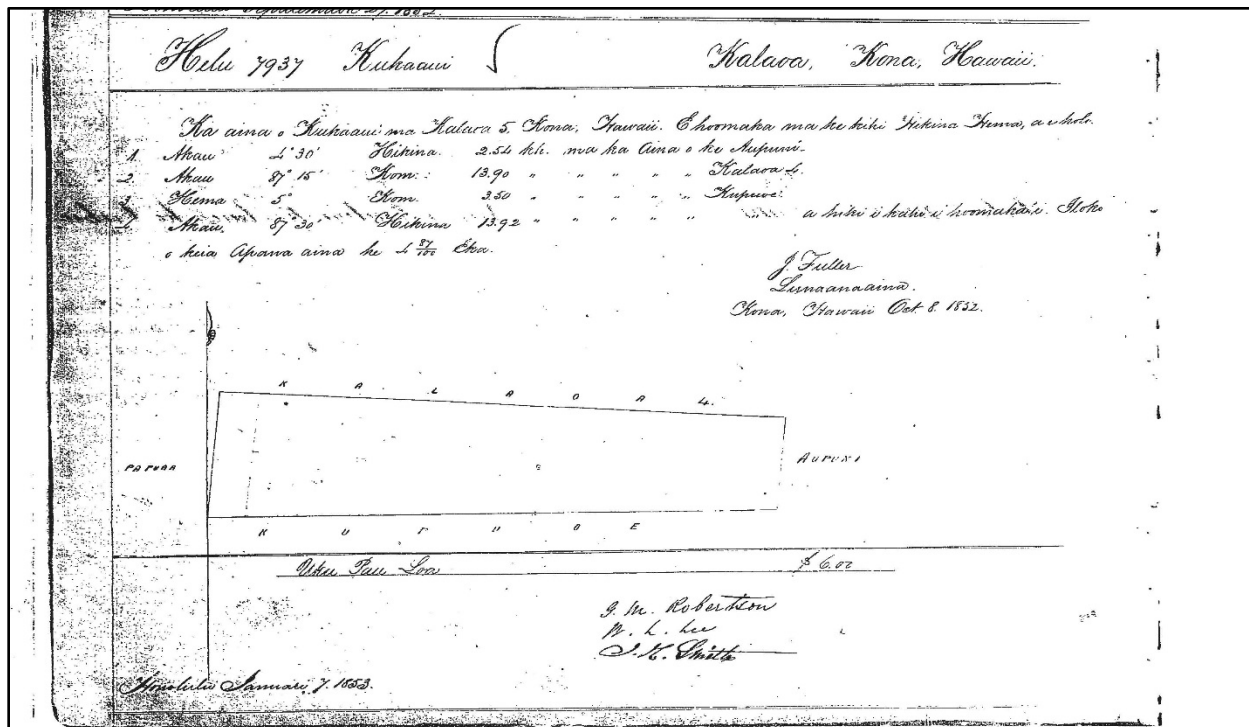 Helu 7937 Kuhaaui Kalaoa, Kona, Hawaii.
Ka aina o Kuhaaui ma Kalaoa 5. Kona, Hawaii. E hoomaka ma ke kihi Hikina Hema, a e holo.
1. Akau 4° 30' Hikina. 2.54 kh. ma ka Aina o ke Aupuni.
2. Akau 87° 15' Kom. 13.90 " " " " " Kalaoa 4.
Hema 5° Kom. 3.50 " " " " "
Akau. 87° 30' Hikina 13.92 " " " " " a hiki i kahi i hoomakai. Iloko
o keia Apana aina he 4 87/100 Eka.
J. Fuller
Kona, Hawaii Oct. 8. 1852.
KALAOA 4.
AUPUNI
Uku Pau Loa $ 6.02
G. M. Robertson
W. L. Lee
J. H. Smith
Honolulu Januari 7. 1853.